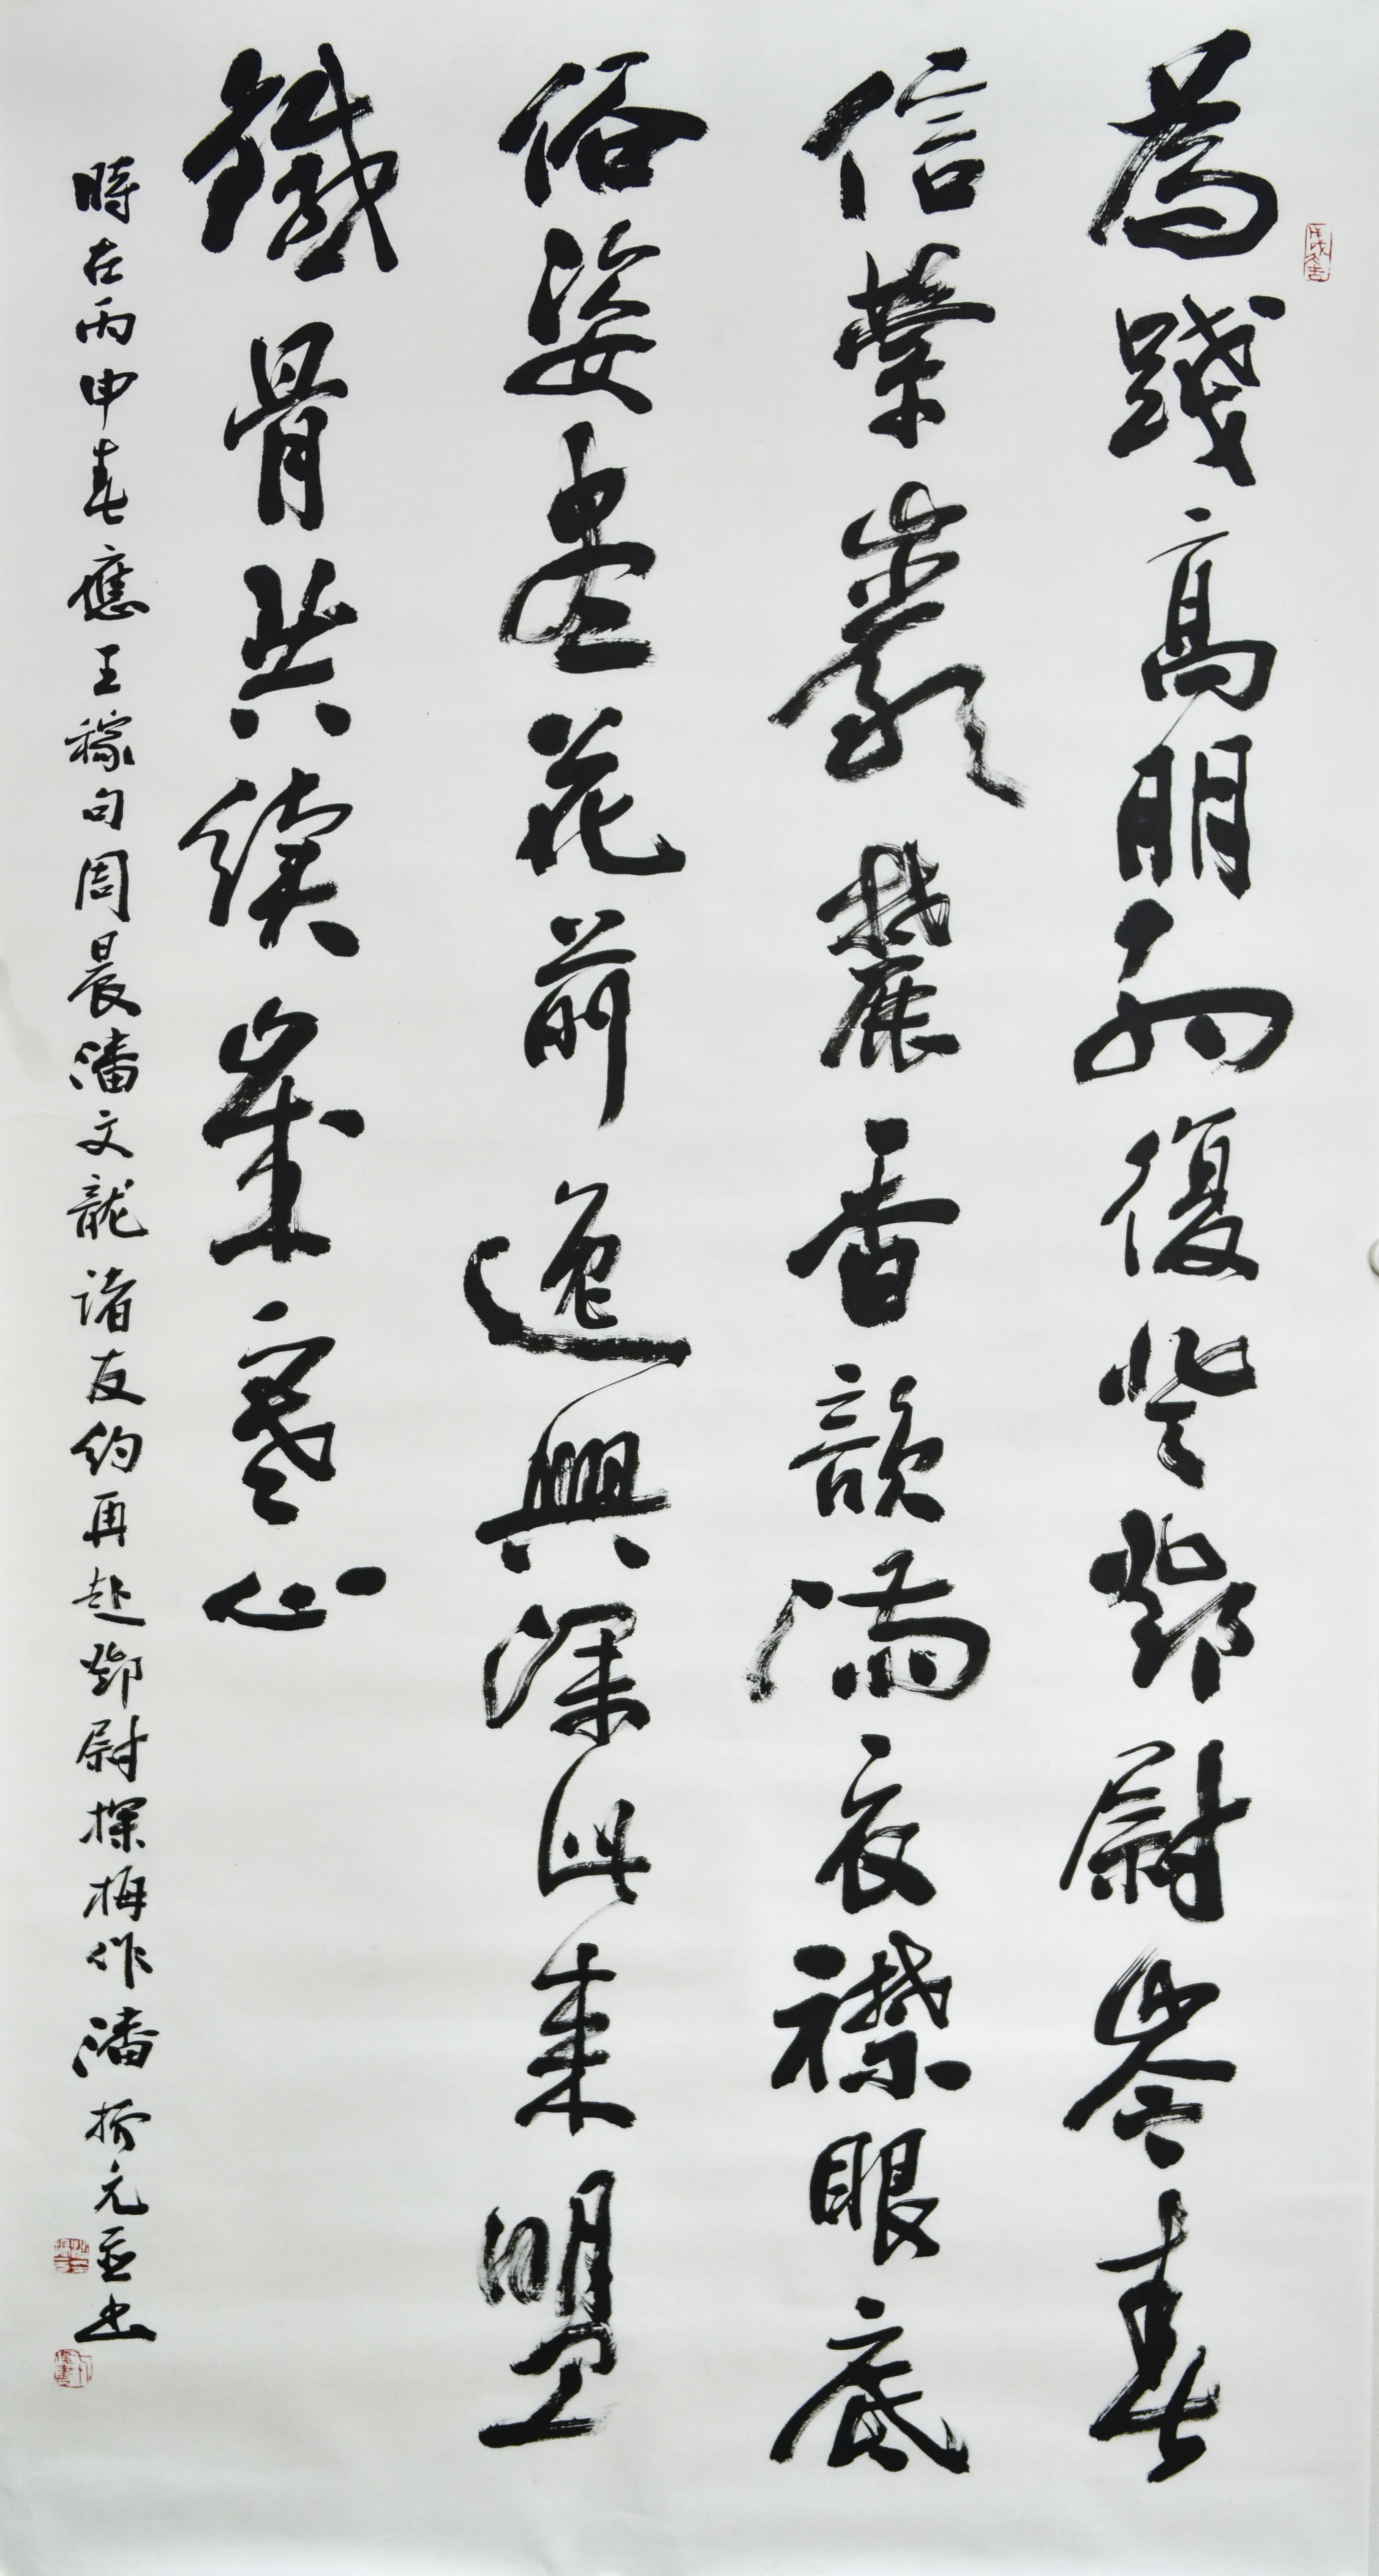 為踐高朋約復登鄧尉岑春
信縈巖麓香韻滿衣襟眼底
俗姿盡花前逸興深此來盟
鐵骨共續歲寒心
時在丙申春應王稼句周晨潘文龍諸友約再赴鄧尉探梅作潘振元並書